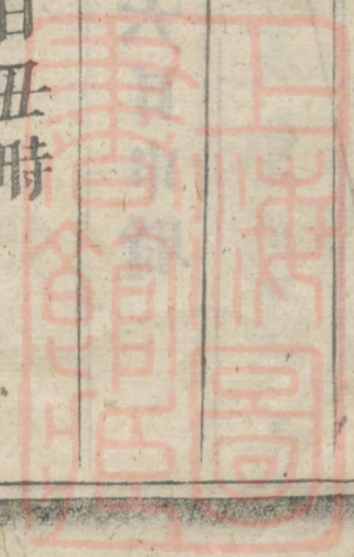 上海圖
書館藏
日丑時